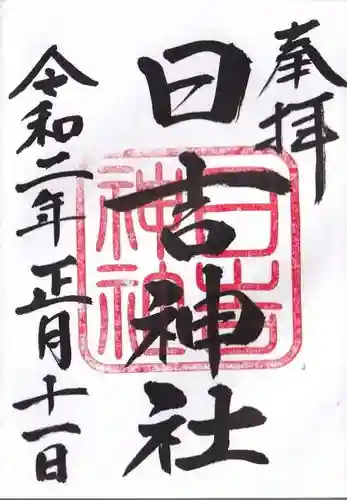 奉拝
日吉神社
令和二年正月十一日
日吉
神社